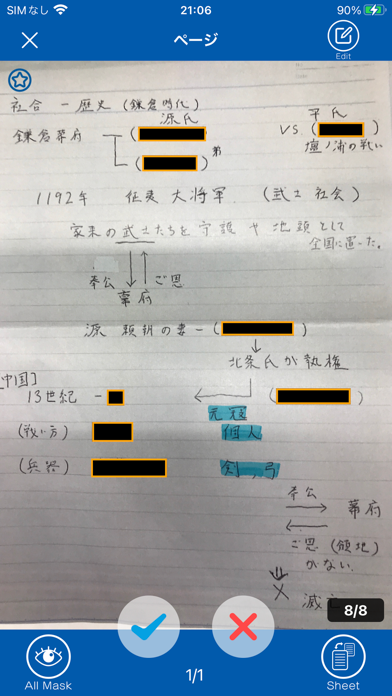 SIMなし 21:06 90%
ページ
Edit
社会 - 歴史 (鎌倉時代)
源氏 平氏
鎌倉幕府 ( ) VS ( )
( )弟 壇ノ浦の戦い
1192年 征夷大将軍 (武士社会)
家来の武士たちを守護や地頭として
全国に置いた。
奉公 ご恩
幕府
源頼朝の妻 - ( )
北条氏が執権
[中国]
13世紀 - ( )
元寇
(戦い方) 個人
(兵器) 剣、弓
奉公 幕府
ご恩(領地)
がない
滅亡
8/8
All Mask 1/1 Sheet